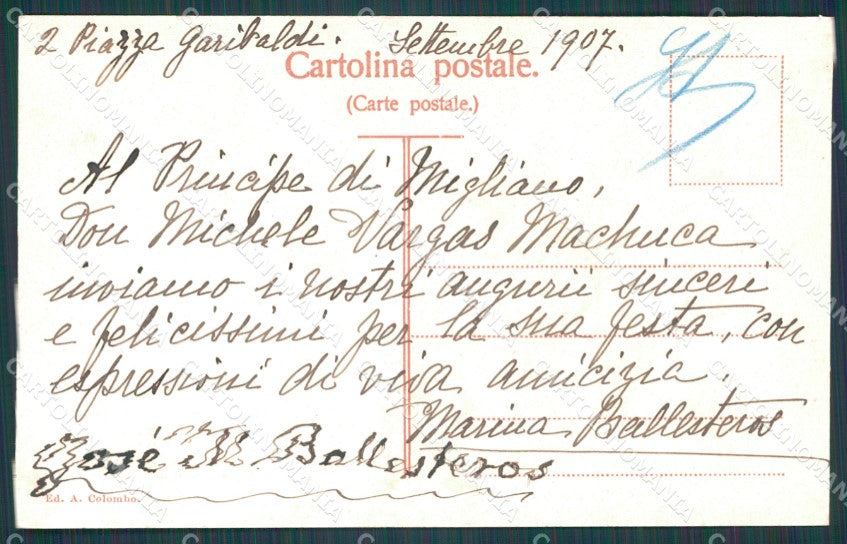 2 Piazza Garibaldi. Settembre 1907.
Cartolina postale.
(Carte postale.)
Al Principe di Migliano,
Don Michele Vargas Machuca
inviamo i nostri augurii sinceri
e felicissimi per la sua festa, con
espressioni di viva amicizia.
Marina Ballesteros
José M Ballesteros
Ed. A. Colombo.
CARTOLINOMANIA